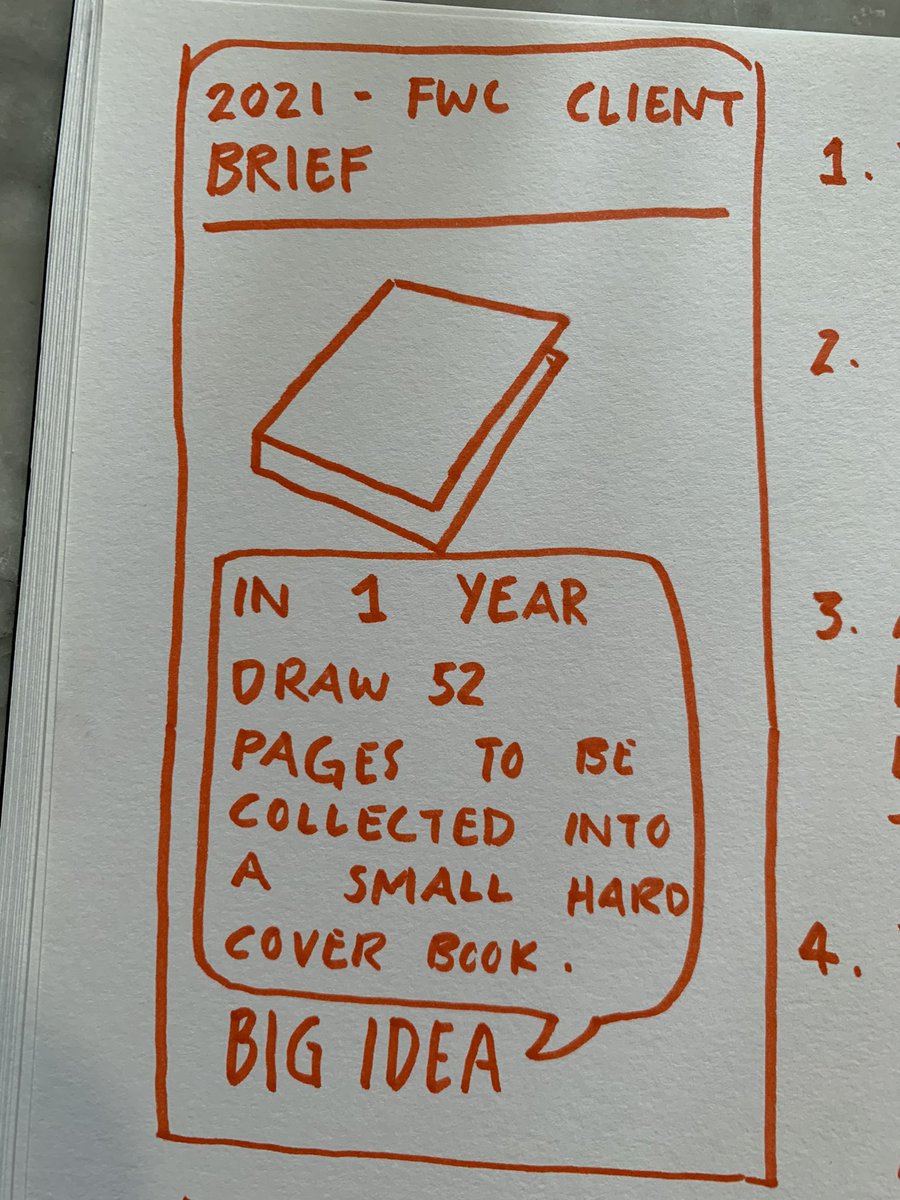 2021 - FWC CLIENT
BRIEF
IN 1 YEAR
DRAW 52
PAGES TO BE
COLLECTED INTO
A SMALL HARD
COVER BOOK.
BIG IDEA
1.
2.
3.
4.